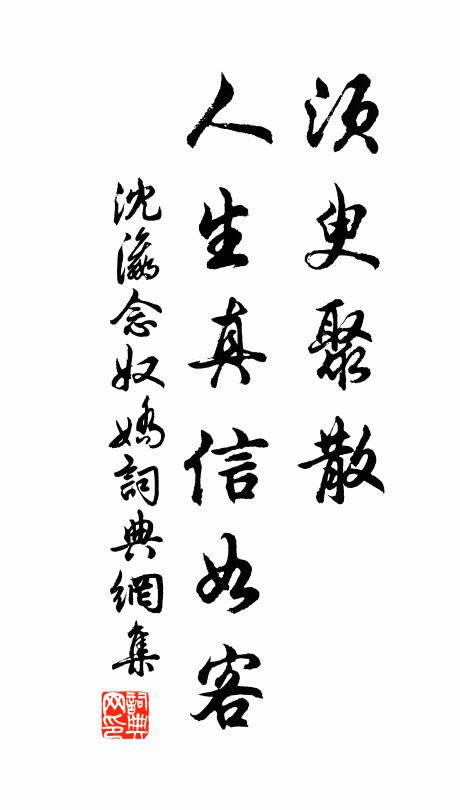 須臾聚散
人生真信如客
沈瀛念奴嬌詞典網集
詞典網印